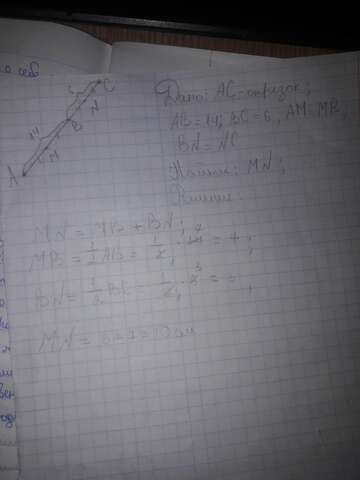 о себ
C
N
B
14
M
A
Дано: AC-отрезок;
AB=14; BC=6, AM=MB,
BN=NC
Найти: MN;
Решение:
MN=MB+BN;
MB=1/2AB=1/2·14=7;
BN=1/2BC=1/2·6=3;
MN=